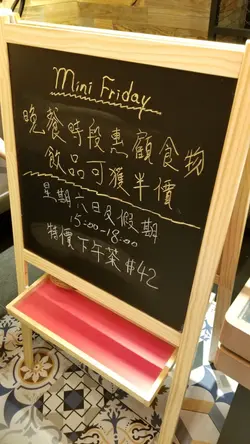 Mini Friday
晚餐時段惠顧食物
飲品可獲半價
星期六日及假期
15:00-18:00
特價下午茶 $42